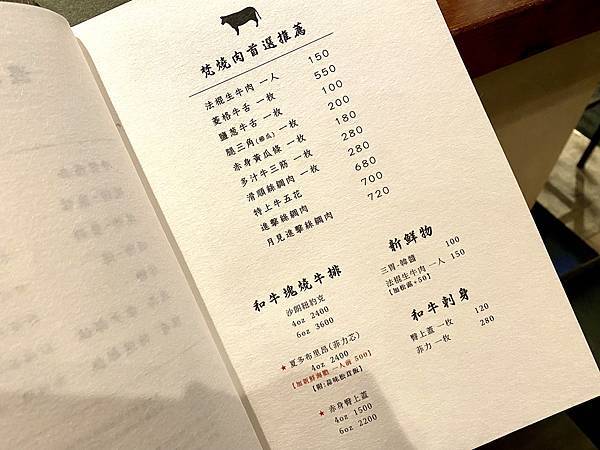 梵燒肉首選推薦
法棍生牛肉 一人 150
菱格牛舌 一枚 550
鹽蔥牛舌 一枚 100
腿三角(櫛瓜) 一枚 200
赤身黃瓜條 一枚 180
多汁牛三筋 一枚 280
滑順絲綢肉 一枚 280
特上牛五花 680
進擊絲綢肉 700
月見進擊絲綢肉 720
和牛塊燒牛排
沙朗紐約克
4oz 2400
6oz 3600
★ 夏多布里昂(菲力芯)
4oz 2400
【加新鮮海膽 一人前 500】
【附:蒜味松貝飯】
★ 赤身臀上蓋
4oz 1500
6oz 2200
新鮮物
三胃-韓醬 100
法棍生牛肉 一人 150
【加松露+50】
和牛刺身
臀上蓋 一枚 120
菲力 一枚 280